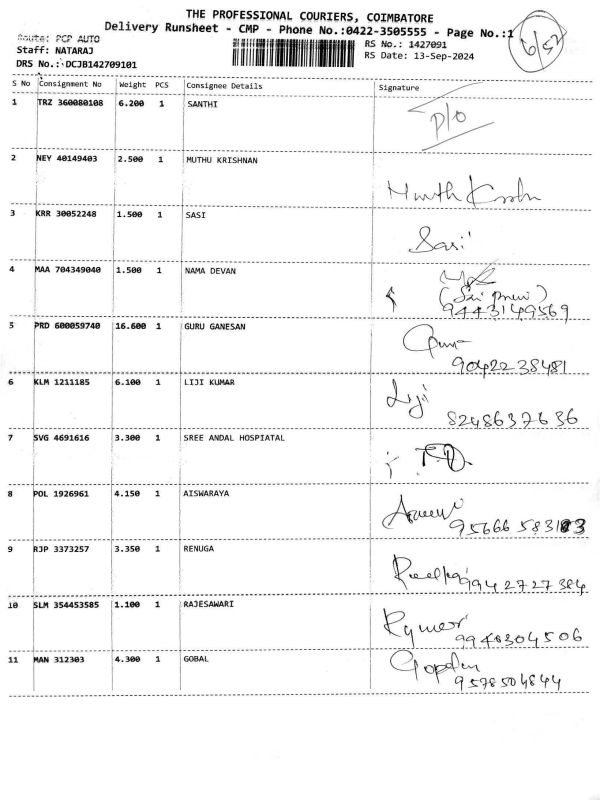 THE PROFESSIONAL COURIERS, COIMBATORE
Delivery Runsheet - CMP - Phone No.:0422-3505555 - Page No.:1
Route: PCP AUTO
RS No.: 1427091
Staff: NATARAJ
RS Date: 13-Sep-2024
DRS No.: DCJB142709101
S No Consignment No Weight PCS Consignee Details Signature
1 TRZ 360080108 6.200 1 SANTHI
P/O
2 NEY 40149403 2.500 1 MUTHU KRISHNAN
3 KRR 30052248 1.500 1 SASI
Sasi
4 MAA 704349040 1.500 1 NAMA DEVAN
9443149569
5 PRD 600059740 16.600 1 GURU GANESAN
9042238481
6 KLM 1211185 6.100 1 LIJI KUMAR
Liji
8248637636
7 SVG 4691616 3.300 1 SREE ANDAL HOSPIATAL
8 POL 1926961 4.150 1 AISWARAYA
9 RJP 3373257 3.350 1 RENUGA
9942727384
10 SLM 354453585 1.100 1 RAJESAWARI
9948304506
11 MAN 312303 4.300 1 GOBAL
9578504844